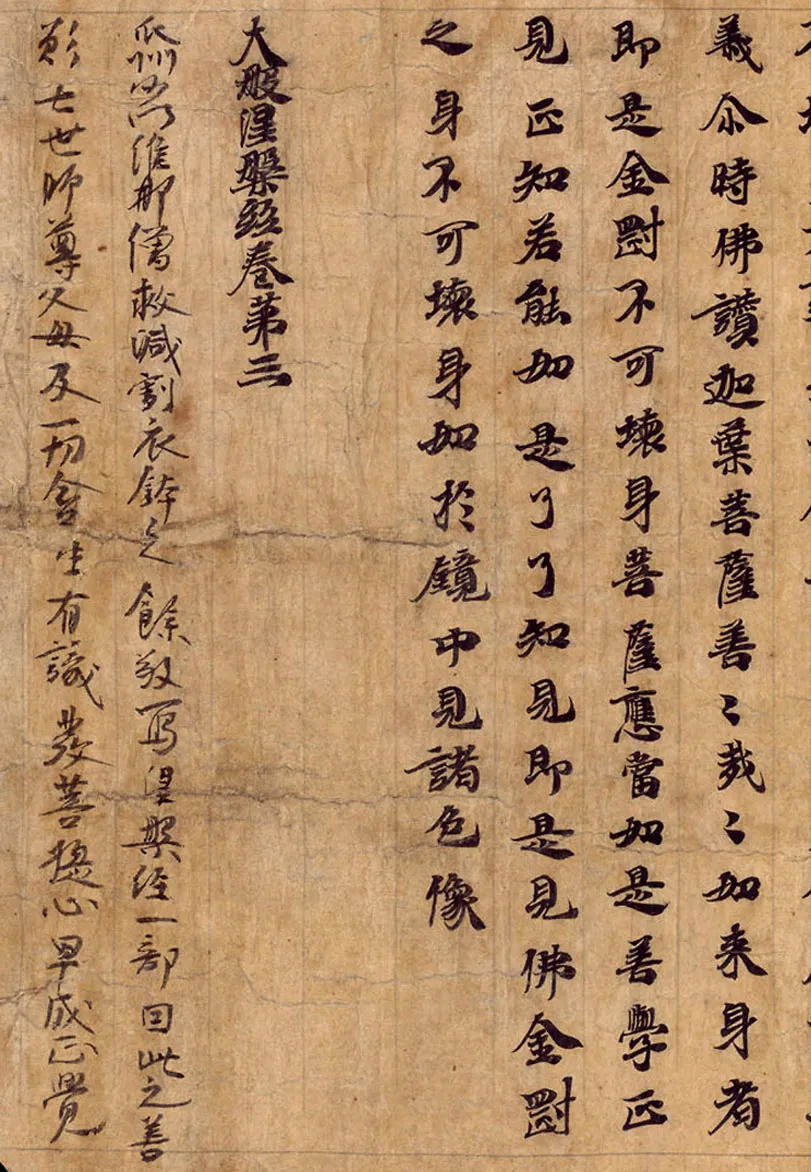 義尒時佛讚迦葉菩薩善〻哉〻如来身者
即是金剛不可壞身菩薩應當如是善學正
見正知若能如是了了知見即是見佛金剛
之身不可壞身如於鏡中見諸色像
大般涅槃經卷第三
瓜州沙門維那僧救減割衣鉢之餘敬寫涅槃經一部因此之善
願七世師尊父母及一切含生有識發菩提心早成正覺